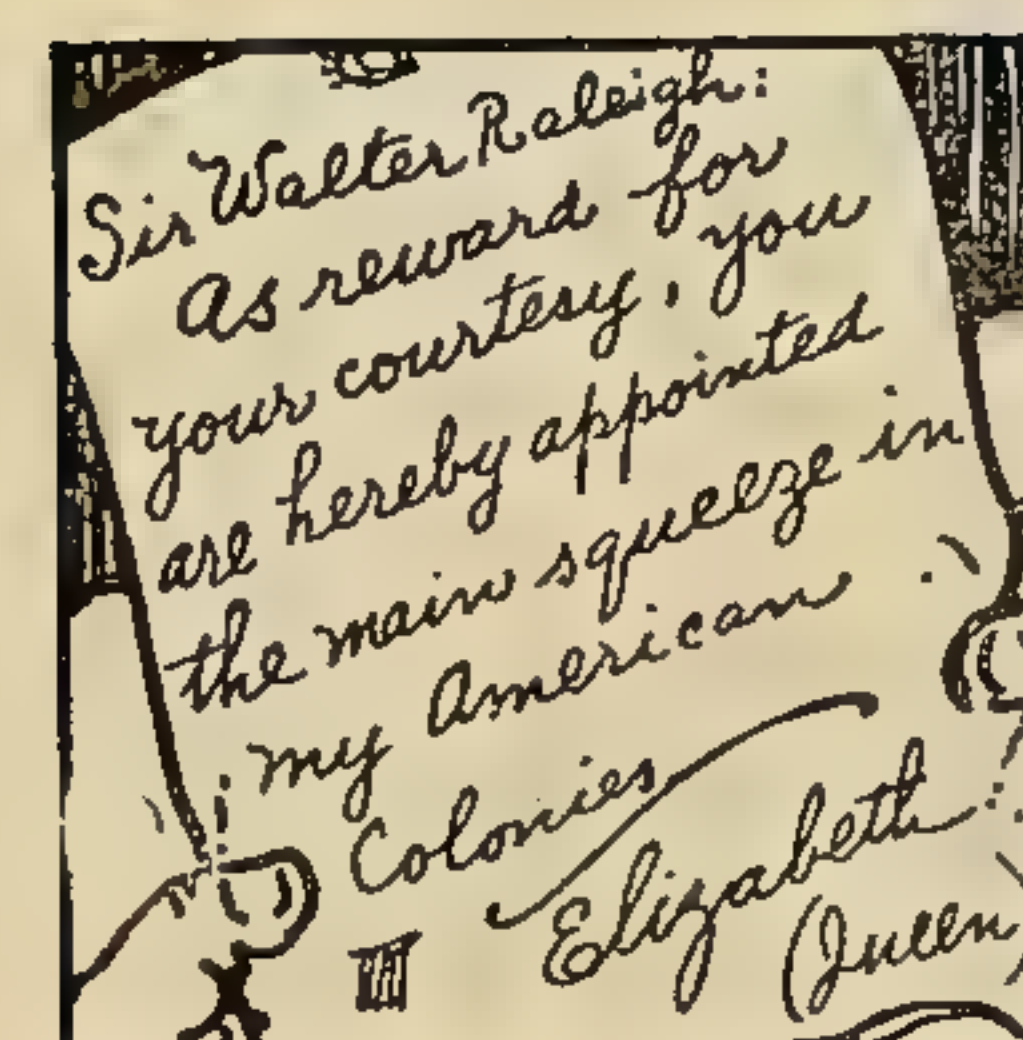 Sir Walter Raleigh:
As reward for
your courtesy, you
are hereby appointed
the main squeeze in
my American
Colonies
Elizabeth
(Queen)